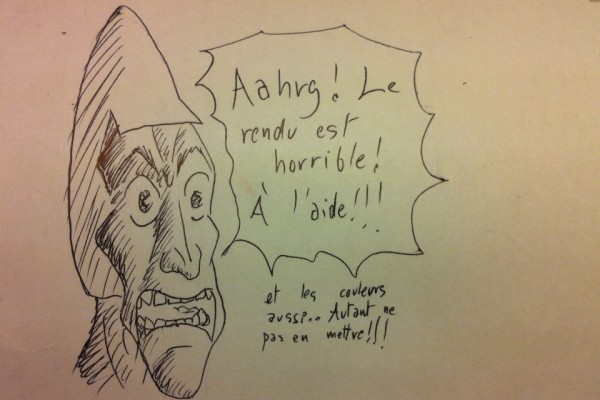 Aahrg! Le
rendu est
horrible!
À l'aide!!!
et les couleurs
aussi... Autant ne
pas en mettre!!!